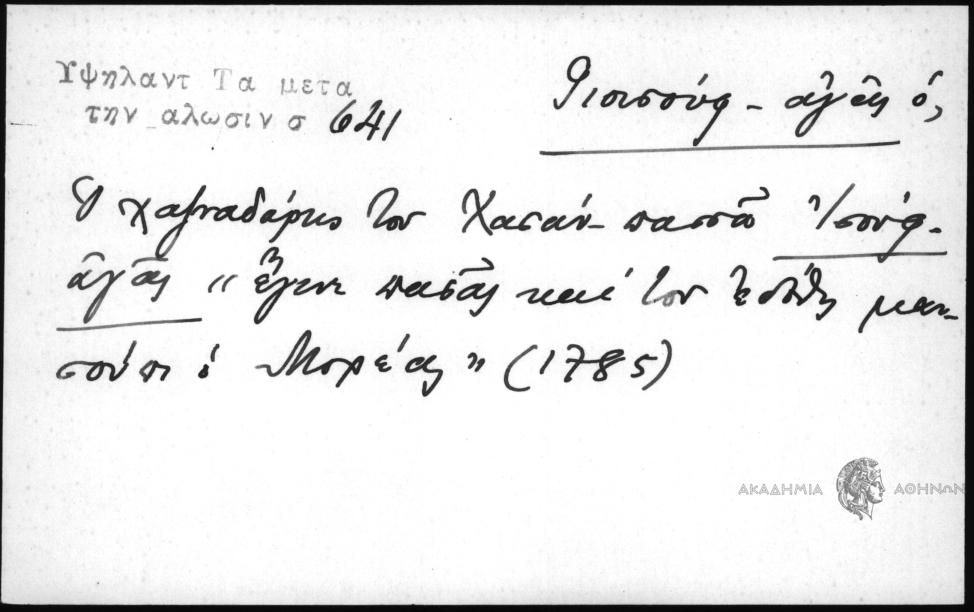 Υψηλαντ Τα μετα
την αλωσιν σ 641
Γιουσούφ - ἀγᾶς ὁ,
Ὁ χαζναδάρης του Χασάν-πασσᾶ Ἰσούφ-
ἀγᾶς „ ἔγινε πασᾶς καί του ἐδόθη μαν-
σούπι ὁ Μορέας" (1785)
ΑΚΑΔΗΜΙΑ ΑΘΗΝΩΝ